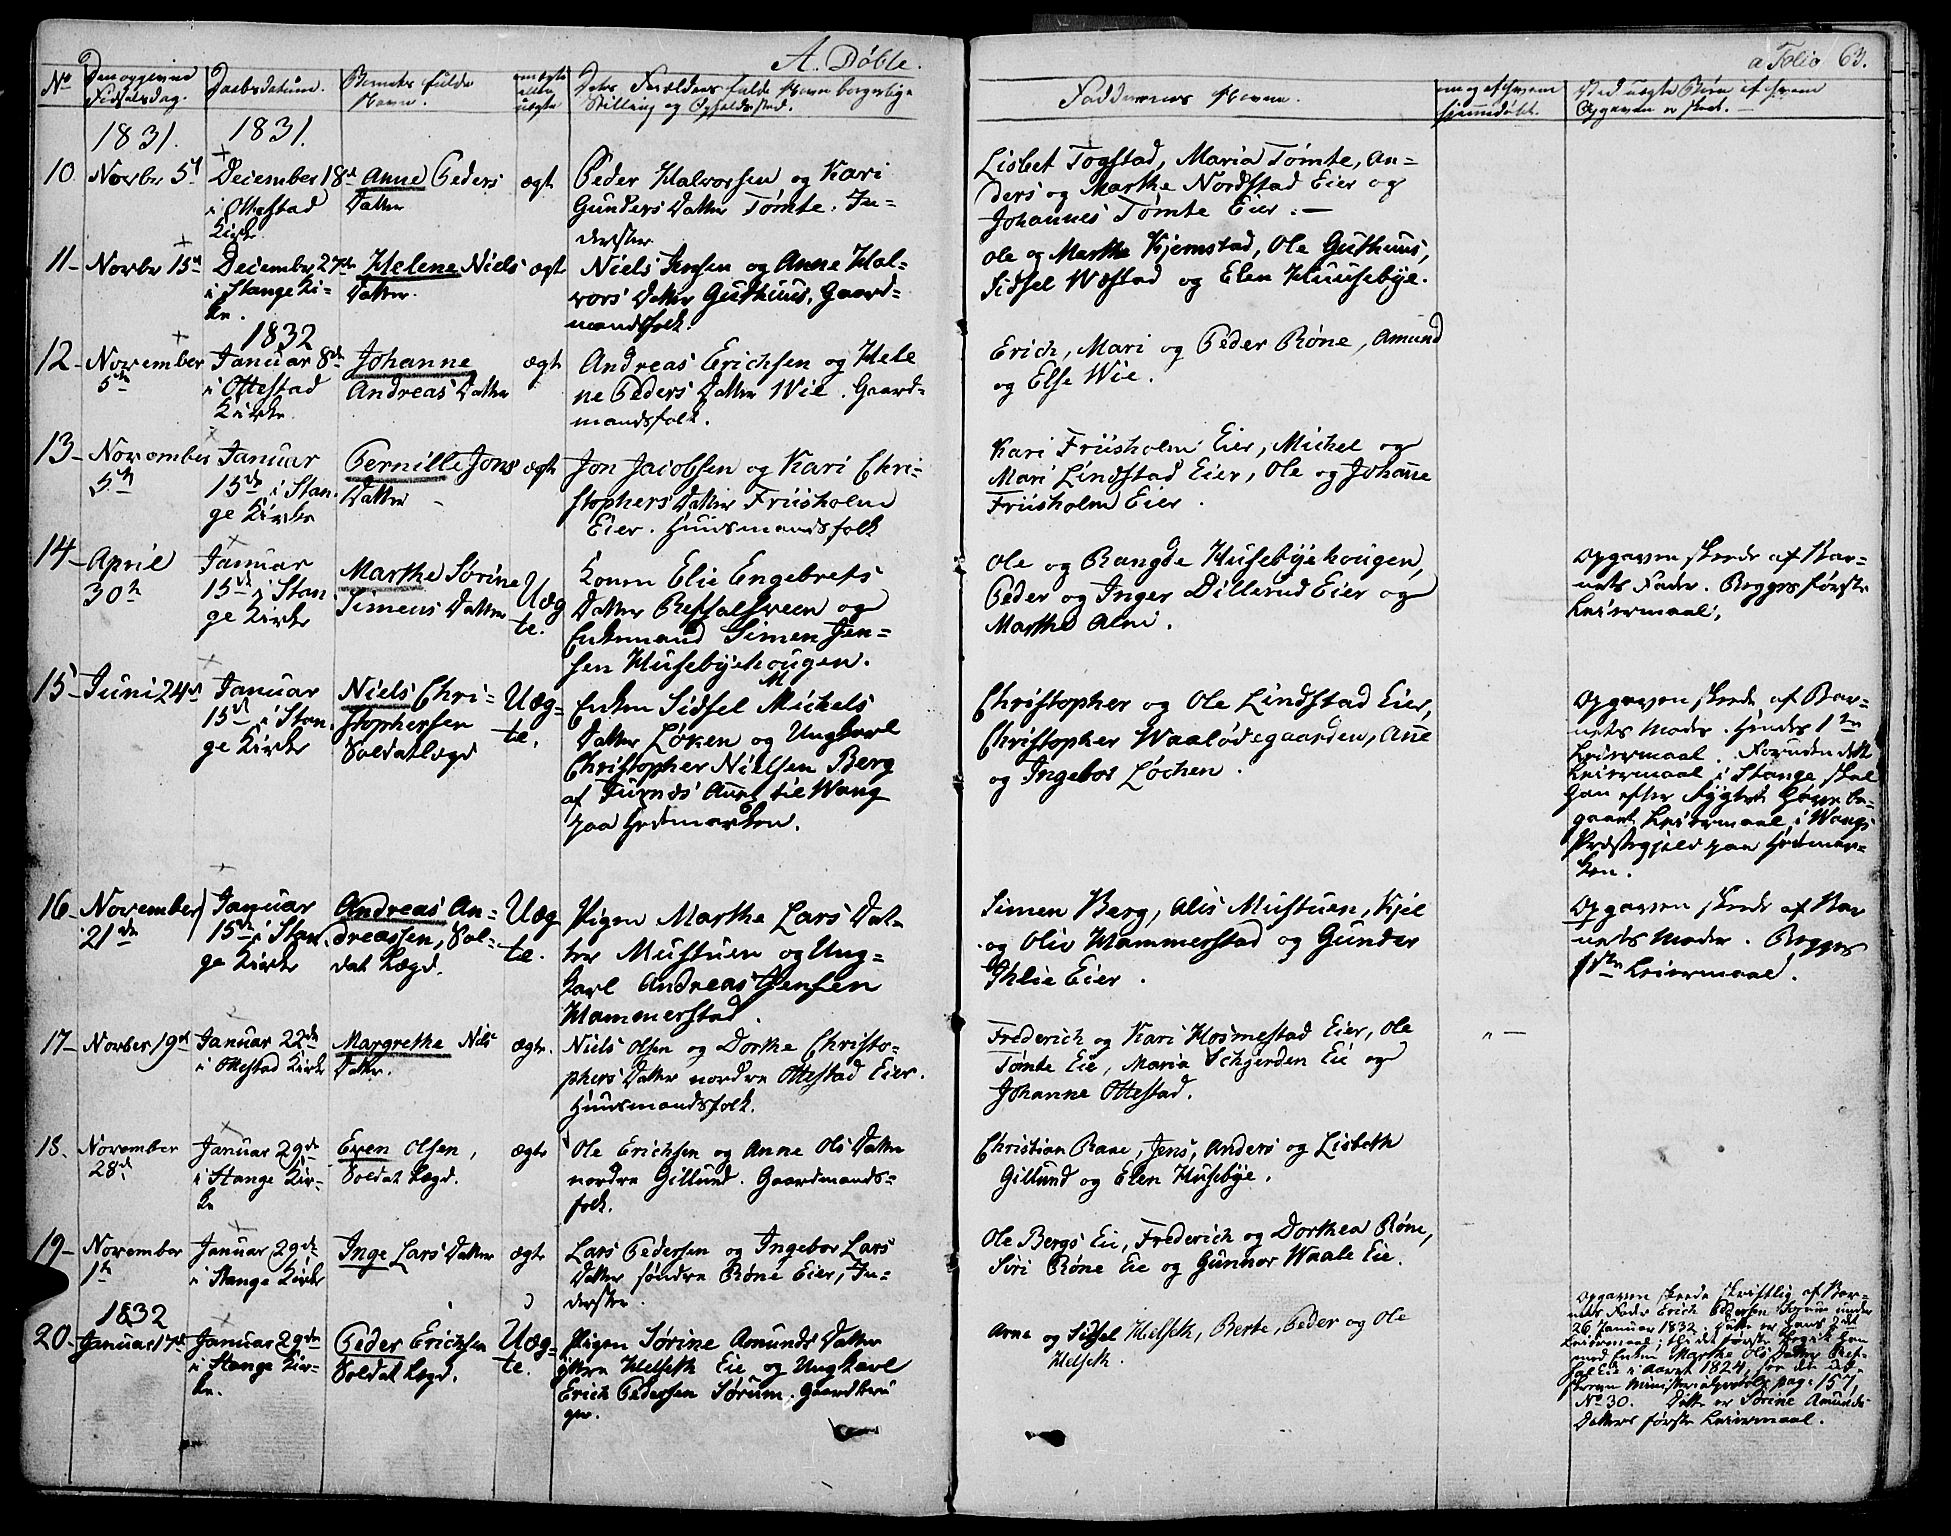 A. Døbte.
a Folio 63.
No
Den opgivne Fødselsdag.
Daabsdatum.
Barnets fulde Navn.
ægte eller uægte
Dets Forældres fulde Navn borgerlige
Stilling og Opholdssted.
Faddernes Navne.
om og af hvem
hjemmedøbt.
Ved uægte Børn af hvem
Opgaven er skeet.
1831.
1831.
10. Novber 5t
December 18d
i Ottestad
Kirke
Anne Peders
Datter
ægt
Peder Halvorsen og Kari
Gunders Datter Tømte. In-
derster
Lisbet Togstad, Maria Tømte, An-
ders og Marthe Nordstad Eier og
Johannes Tømte Eier.
11- Novbr 15d
December 27de
i Stange Kir-
ke.
Helene Niels
Datter.
ægt
Niels Jensen og Anne Hal-
vors Datter Guthuus, Gaard-
mandsfolk.
Ole og Marthe Kjemstad, Ole Guthuus,
Sidsel Wæstad og Elen Huusebye.
1832
12- November
5te
Januar 8de
i Ottestad
Kirke
Johanne
Andreas Datter
ægt
Andreas Erichsen og Hele
ne Peders Datter Wie. Gaard-
mandsfolk.
Erich, Mari og Peder Røne, Amund
og Else Wie.
13- November
5te
Januar
15de i Stan-
ge Kirke
Pernille Jons
Datter
ægt
Jon Jacobsen og Kari Chri-
stophers Datter Friisholm
Eier. Huusmandsfolk
Kari Friisholm Eier, Michel og
Mari Lindstad Eier, Ole og Johanne
Friisholm Eier.
14- April
30te
Januar
15de i Stan
ge Kirke
Marthe Sørine
Simens Datter
Uæg
te.
Konen Elie Engebrets
Datter Refsalsveen og
Enkemand Simen Jen-
sen Husebyehougen.
Ole og Rangde Husebyehougen,
Peder og Inger Dillerud Eier og
Marthe Alm.
Opgaven skeede af Bar-
nets Fader. Begges første
Leiermaal.
15- Juni 24de
Januar
15de i Stan-
ge Kirke
Niels Chri-
stophersen
Soldatlægd
Uæg-
te.
Enken Sidsel Mickels
Datter Løken og Ungkarl
Christopher Nielsen Berg
af Furnæs Anex til Wang
paa Hedemarken.
Christopher og Ole Lindstad Eier,
Christopher Waalødegaarden, Ane
og Ingebor Løchen.
Opgaven skeede af Bar-
nets Moder. Hendes 1te
Leiermaal. Foruden dette
Leiermaal i Stange skal
han efter Rygtet have be-
gaaet Leiermaal i Wangs
Præstegjeld paa Hedemar-
ken.
16- November
21de
Januar
15de i Stan
ge Kirke
Andreas An-
dreassen, Sol-
dat Lægd.
Uæg
te.
Pigen Marthe Lars Dat-
ter Mustuen og Ung-
karl Andreas Jensen
Hammerstad.
Simen Berg, Alis Mustuen, Kjel
og Oliv Hammerstad og Gunder
Ihlie Eier.
Opgaven skeede af Bar
nets Moder. Begges
1ste Leiermaal.
17- Novber 19de
Januar 22de
i Ottestad Kirke
Margrethe Niels
Datter.
ægte.
Niels Olsen og Dorthe Christo-
phers Datter nordre Ottestad Eier.
Huusmandsfolk.
Frederich og Kari Hosmestad Eier, Ole
Tømte Eie, Maria Schjerden Eie og
Johanne Ottestad.
18. November
28de
Januar 29de
i Stange Kir-
ke
Even Olsen,
Soldat Lægd.
ægte
Ole Erichsen og Anne Ols Datter
nordre Gillund. Gaardmands-
folk.
Christian Rane, Jens, Anders og Lisbeth
Gillund og Elen Husebye.
19- November
1te
Januar 29de
i Stange Kirke
Inge Lars Datter
ægte
Lars Pedersen og Ingebor Lars
Datter søndre Røne Eier, In-
derster.
Ole Bergs Eie, Frederich og Dorthea Røne,
Siri Røne Eie og Gunnor Waale Eie.
1832
20- Januar 17de
Januar 29de
i Stange Kir-
ke.
Peder Erichsen
Soldat Lægd.
Uæg-
te.
Pigen Sørine Amunds Datter
Helseth Eie og Ungkarl
Erich Pedersen Sørum. Gaardbru
ger.
Arne og Sidsel Helseth, Berte, Peder og Ole
Helseth.
Opgaven skeede skriftlig af Bar-
nets Fader Erich Pedersen Sørum under
26 Januar 1832. Dette er hans 2det
Leiermaal, thi det første begik han
med Enken Marthe Ols Datter Ref-
sal Eie i Aaret 1824, see den der-
førende Ministerialprotokol pag: 157,
No 30. Dette er Sørine Amunds
Datters første Leiermaal.